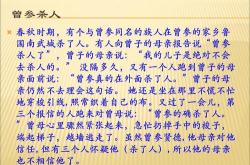 曾参杀人
春秋时期,有个与曾参同名的族人在曾参的家乡鲁
国南武城杀了人。有人向曾子的母亲报告说“曾参
杀人了”,曾子的母亲说:“我的儿子是绝对不会
去杀人的。”没隔多久,又有一个人跑到曾子的母
亲面前说:“曾参真的在外面杀了人。”曾子的母
亲仍然不去理会这句话。她还是坐在那里不慌不忙
地穿梭引线,照常织着自己的布。又过了一会儿,第
三个报信的人跑来对曾母说:“曾参的确杀了人。
”曾母心里骤然紧张起来,急忙扔掉手中的梭子,
端起梯子,越墙逃走了。虽然曾参贤德,他母亲对他
信任,但有三个人怀疑他(杀了人),所以他的母亲
也不相信他了。